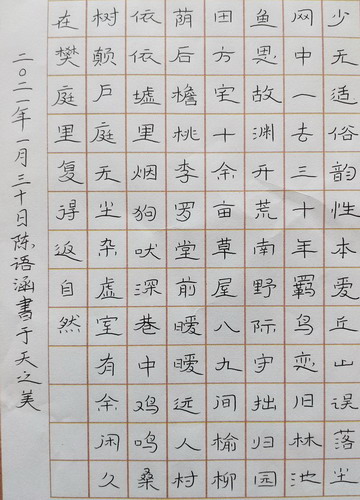 少无适俗韵性本爱丘山误落尘
网中一去三十年羁鸟恋旧林池
鱼思故渊开荒南野际守拙归园
田方宅十余亩草屋八九间榆柳
荫后檐桃李罗堂前暧暧远人村
依依墟里烟狗吠深巷中鸡鸣桑
树颠户庭无尘杂虚室有余闲久
在樊庭里复得返自然
二〇二一年一月三十日陈语涵書于天之美